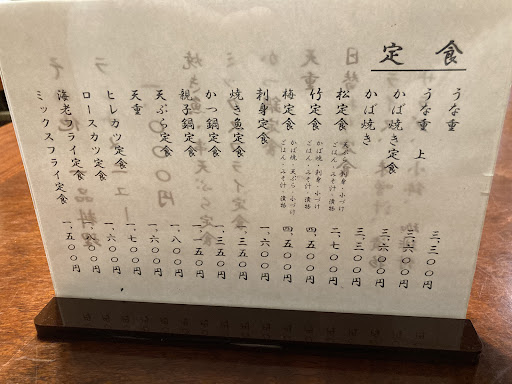 定 食
うな重 三、三〇〇円
うな重 上 三、六〇〇円
かば焼き定食 三、六〇〇円
かば焼き 三、三〇〇円
松定食 天ぷら・刺身・小づけ
ごはん・みそ汁・漬物 二、七〇〇円
竹定食 かば焼・刺身・小づけ
ごはん・みそ汁・漬物 四、五〇〇円
梅定食 かば焼・天ぷら・小づけ
ごはん・みそ汁・漬物 四、五〇〇円
刺身定食 一、六〇〇円
焼き魚定食 一、三五〇円
かつ鍋定食 一、三五〇円
親子鍋定食
天ぷら定食 一、八〇〇円
天重 一、六〇〇円
ヒレカツ定食 一、七〇〇円
ロースカツ定食 一、六〇〇円
海老フライ定食
ミックスフライ定食 一、五〇〇円